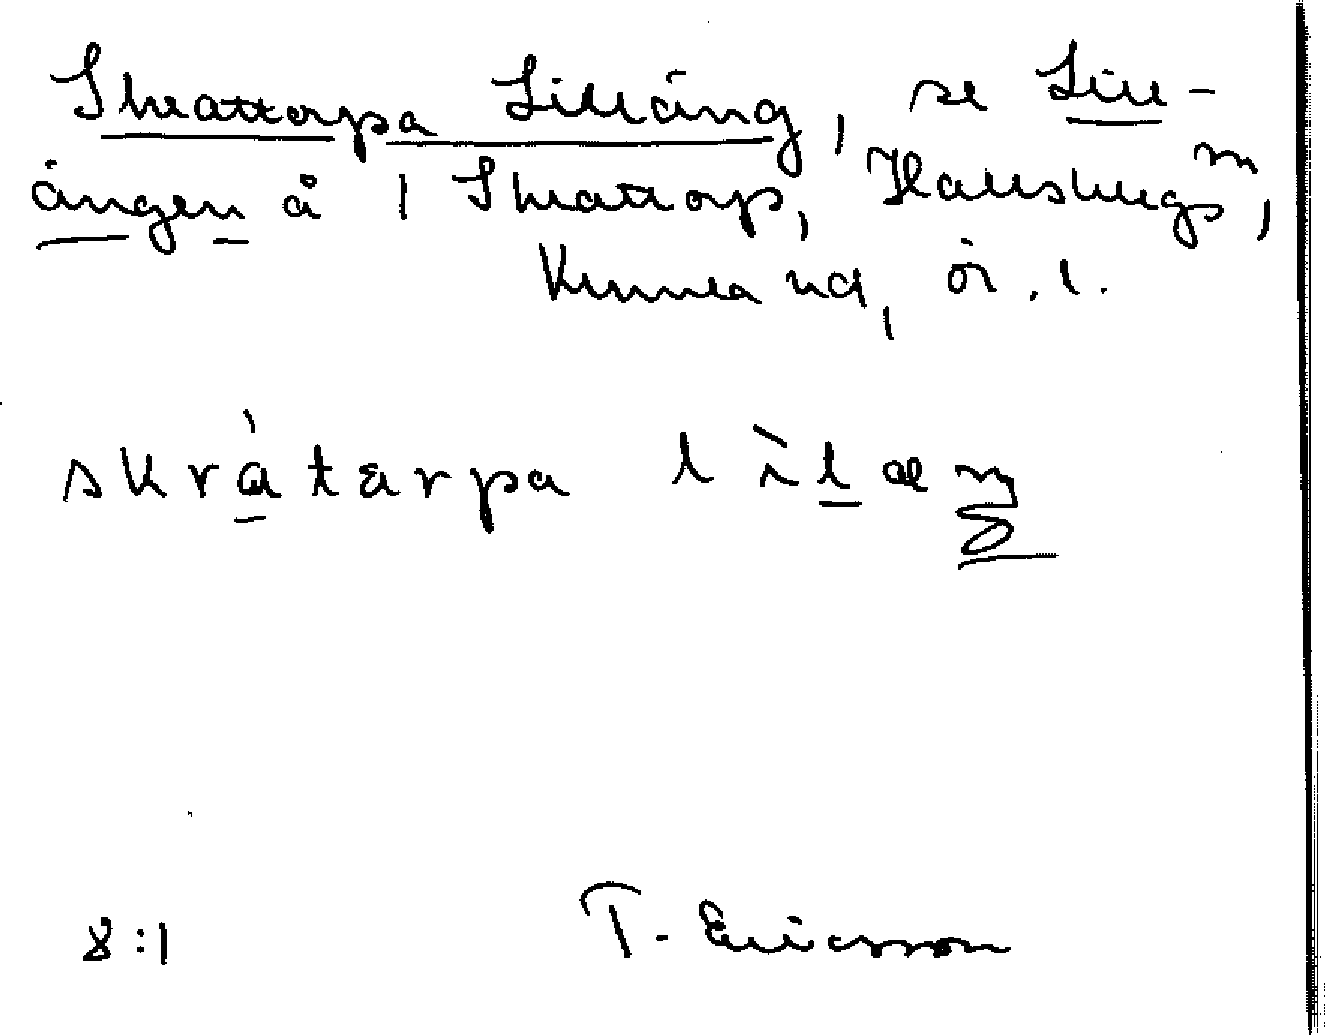 Skrattorpa Lilläng, se Lill-
ängen å 1 Skrattorp, Hallsbergs m,
Kumla hd, ör. l.
skràtarpa lìlæŋ
8:1 T. Ericsson